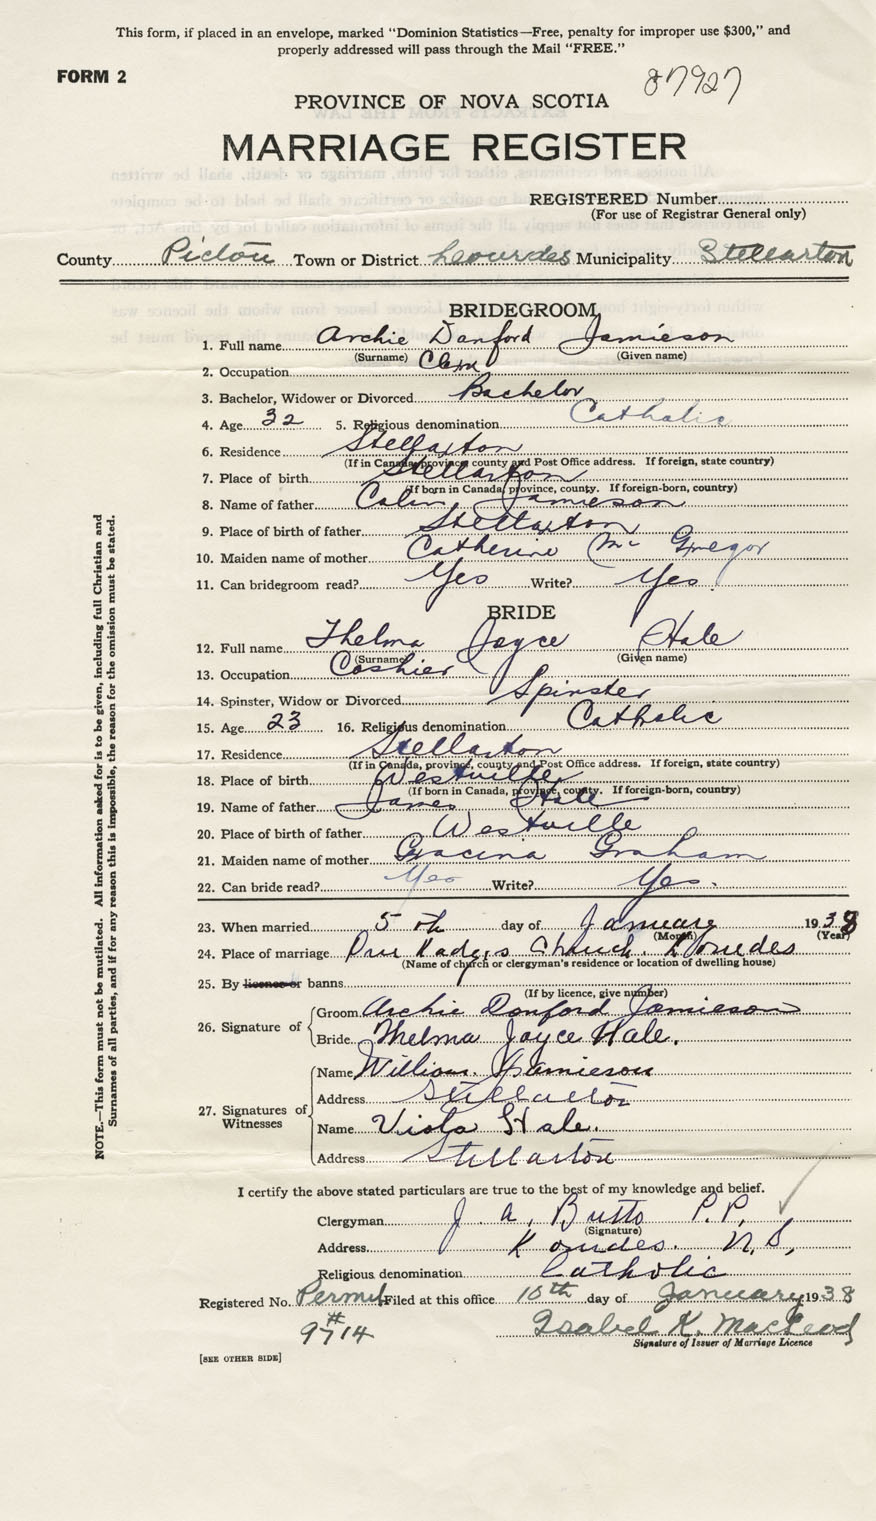 This form, if placed in an envelope, marked "Dominion Statistics—Free, penalty for improper use $300," and
properly addressed will pass through the Mail "FREE."
FORM 2
87927
PROVINCE OF NOVA SCOTIA
MARRIAGE REGISTER
REGISTERED Number
(For use of Registrar General only)
County Pictou Town or District Lourdes Municipality Stellarton
BRIDEGROOM
1. Full name Archie Danford Jamieson
(Surname) (Given name)
2. Occupation
3. Bachelor, Widower or Divorced Bachelor
4. Age 32 5. Religious denomination Catholic
6. Residence Stellarton
(If in Canada, province county and Post Office address. If foreign, state country)
7. Place of birth Stellarton
(If born in Canada, province, county. If foreign-born, country)
8. Name of father Colin Jamieson
9. Place of birth of father Stellarton
10. Maiden name of mother Catherine Mc Gregor
11. Can bridegroom read? Yes Write? Yes
BRIDE
12. Full name Thelma Joyce Hale
(Surname) (Given name)
13. Occupation Cashier
14. Spinster, Widow or Divorced Spinster
15. Age 23 16. Religious denomination Catholic
17. Residence Stellarton
(If in Canada, province, county and Post Office address. If foreign, state country)
18. Place of birth Westville
(If born in Canada, province, county. If foreign-born, country)
19. Name of father James Hale
20. Place of birth of father Westville
21. Maiden name of mother Graham
22. Can bride read? Yes Write? Yes.
23. When married 5 th day of January 1938
(Month) (Year)
24. Place of marriage Church Lourdes
(Name of church or clergyman's residence or location of dwelling house)
25. By licence or banns
(If by licence, give number)
26. Signature of
Groom Archie Donford Jamieson
Bride Thelma Joyce Hale.
27. Signatures of Witnesses
Name William Jamieson
Address Stellarton
Name Viola Hale.
Address Stellarton
I certify the above stated particulars are true to the best of my knowledge and belief.
Clergyman J. A. Butts P.P.
(Signature)
Address Lourdes. N.S,
Religious denomination Catholic
Registered No. Permit Filed at this office 10th day of January 1938
# 9714
Isabel K. MacLeod
Signature of Issuer of Marriage Licence
[SEE OTHER SIDE]
NOTE.—This form must not be mutilated. All information asked for is to be given, including full Christian and
Surnames of all parties, and if for any reason this is impossible, the reason for the omission must be stated.